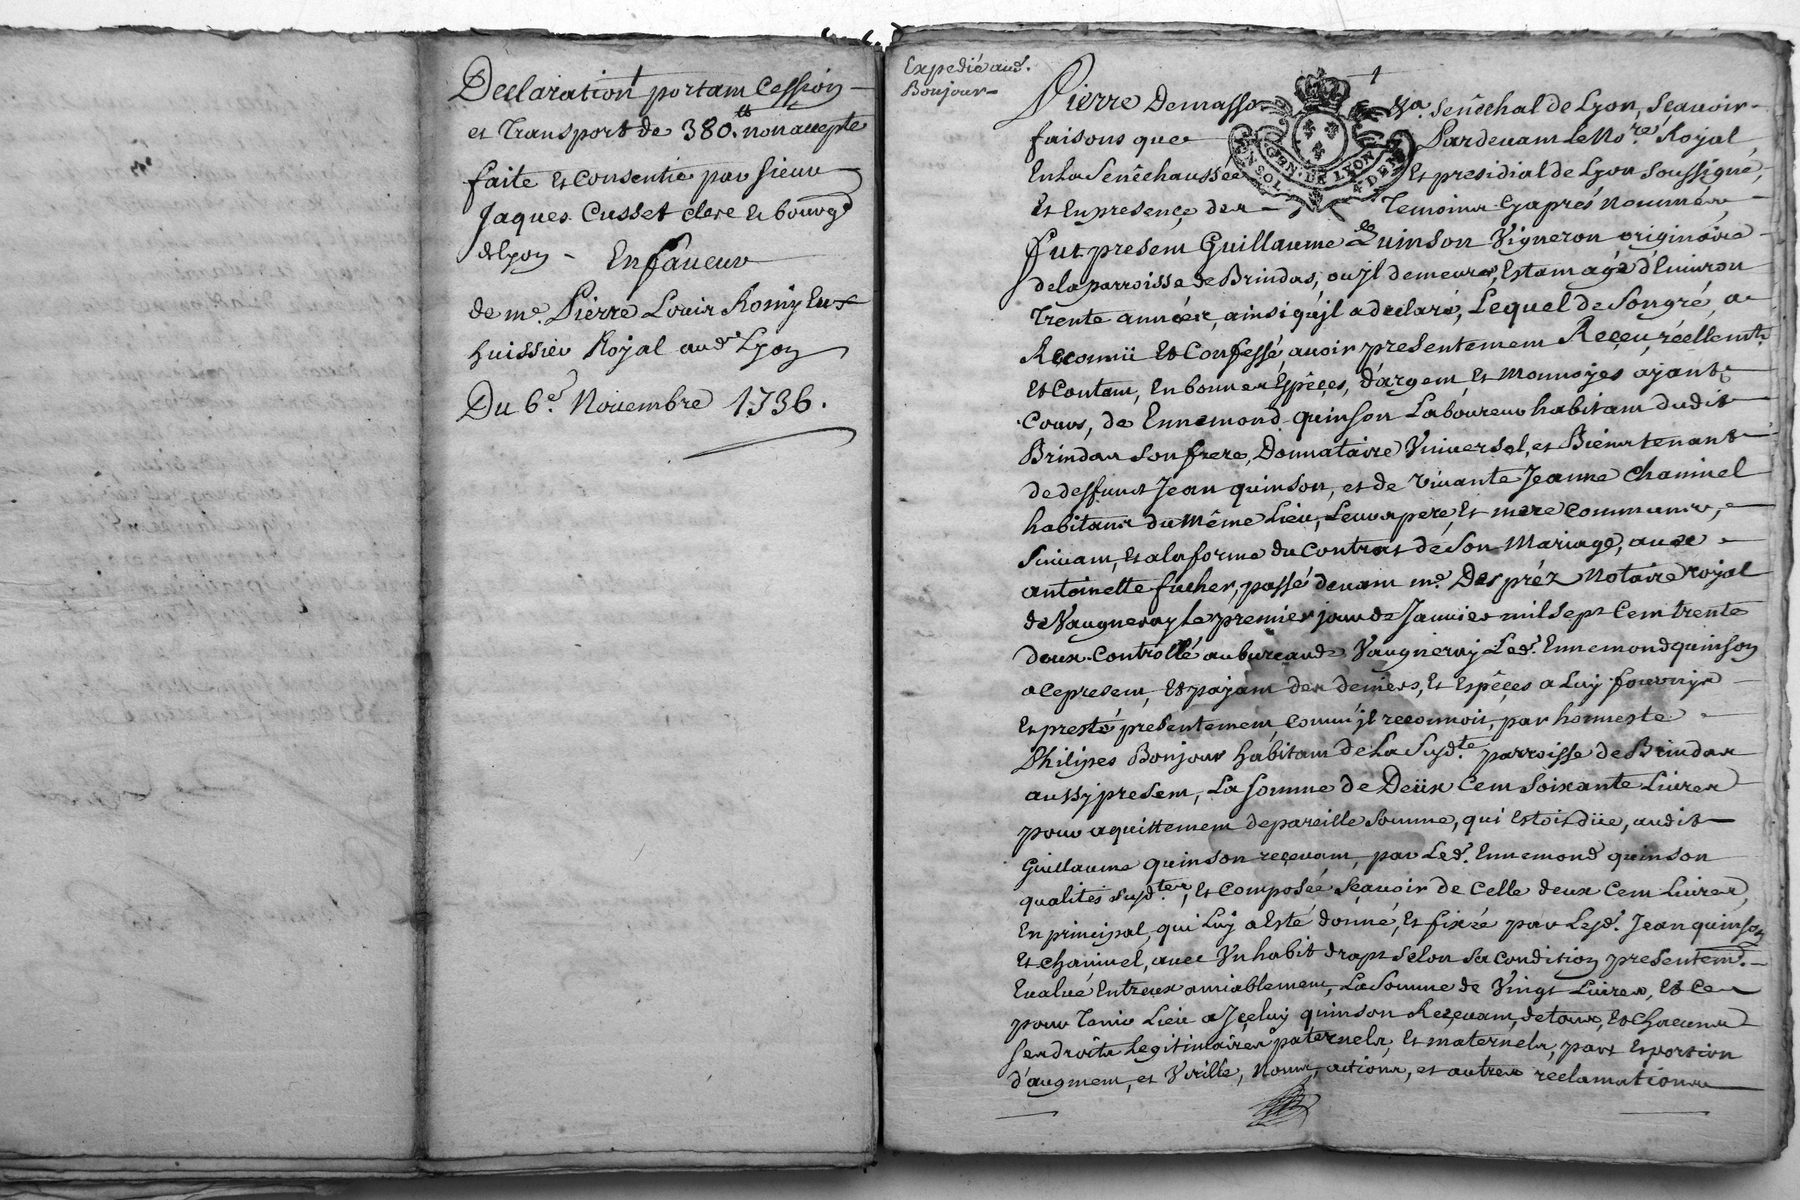 Declaration portant Cession
et Transport de 380.tt non accepte
faite et consentie par sieur
Jaques Cusset clerc et bourgs
de Lyon – En faveur
de me. Pierre Louis Romyeux
huissier Royal aud. Lyon
Du 6e. Novembre 1736.
Expedié aud.
Bonjour
1
Pierre Demasso &a. Senêchal de Lyon, Sçavoir
faisons que Pardevant Le No.re Royal
En La Senêchaussée Et presidial de Lyon soussigné,
GEN. DE LYON
UN SOL. 4 DEN.
Et En presençe des Temoins Cy après Nommés,
fut present Guillaume Quinson Vigneron originaire
de la parroisse de Brindas, ou jl demeure, Estant agé d'Environ
Trente années, ainsi qu'jl a declaré, Lequel de son gré, a
Reconnü Et Confessé avoir presentement Reçeu, réellemt.
Et Contant, En bonnes Espêçes, d'argent Et Monnoyes ayant
Cours, de Ennemond quinson Laboureur habitant dudit
Brindas son frere, Donnataire Vniversel, et Biens tenant
de deffunt Jean quinson, et de vivante Jeanne Chaninel
habitans du Même Lieu, Leurs pere, Et mere communs,
Suivant, Et a la forme du Contrat de Son Mariage, avec
antoinette fucher, passé devant me. Des préz Notaire royal
de Vaugneray Le premier jour de Janvier mil sept Cent trente
deux Controllé au bureau de Vaugneray Led. Ennemond quinson
a Ce present, Et payant des deniers, Et Espêçes a Luy fournys
Et presté presentement, comm'jl reconnoit, par honneste
Philipes Bonjour habitant de La Susd.te parroisse de Brindas
aussy present, La Somme de Deüx Cent soixante Livres
pour aquittement de pareille Somme, qui Estoit düe, audit
Guillaume quinson reçevant, par Led. Ennemond quinson
qualités susd.tes, Et Composée, Sçavoir de Celle deux Cent Livres,
En principal, qui Luy a Esté donné, Et fixée par Lesd. Jean quinson
Et Chaninel, avec Vn habit drapt selon sa condition presentemt.
Evalué Entreux amiablement, La Somme de Vingt Livres, Et Ce
pour Tenir Lieu a Jçeluy quinson Reçevant, de tous, Et Chacuns
ses droits legitimaires paternels, Et maternels, part Et portion
d'augment, et Virille, Noms, actions, et autres reclamations